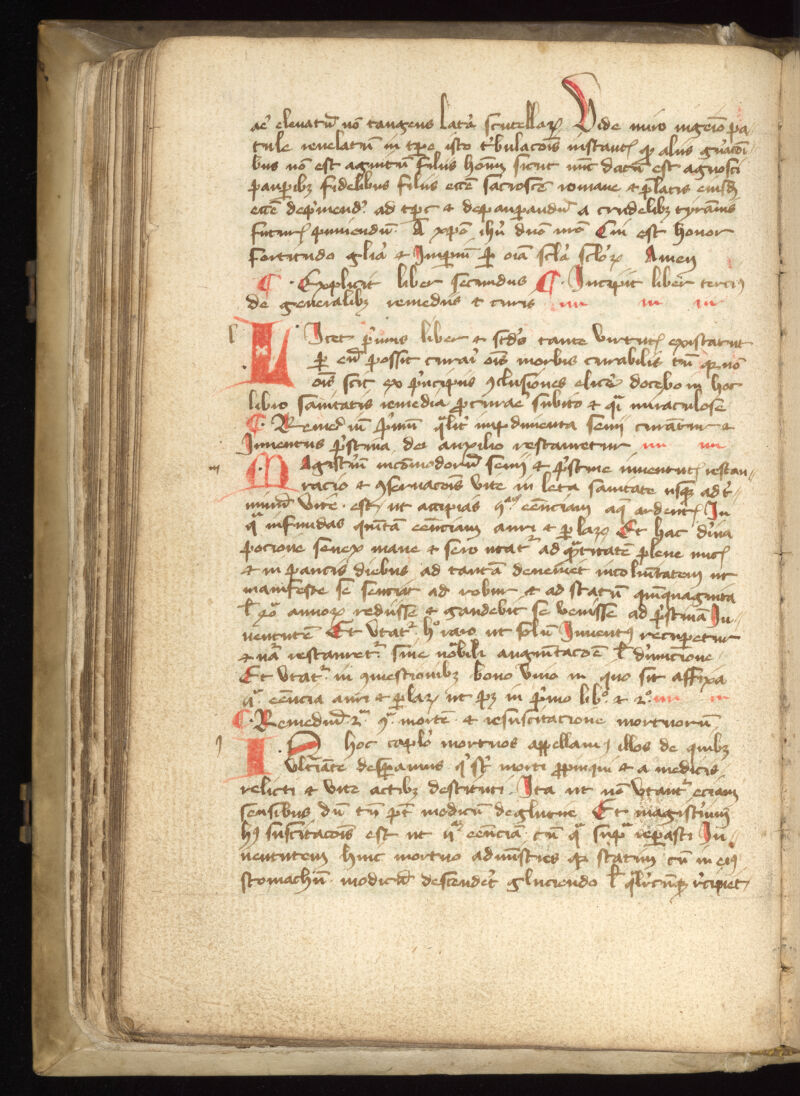 elevatum non tangens latera scutellarum Vide miro ingenio pa
tule revelatum in tempore isto tribulacionis instantis quod aliis
bus non est agnitum filiis hominum sicut nunc datum est agnosci
pauperibus fidelibus filiis ecclesie sacrosancte romane et prelatis eiusdem
ecclesie deprimende ad tempus et depauperandum a crudelibus tyrannis
futuris puniendum A christo ihesu domino nostro Cui est honor
fortitudo gloria et Imperium per omnia secula seculorum Amen
Explicit liber secundus Incipit liber tercius
de generalibus remediis et curis
Licet primus liber et secundus tante virtutis existant ut
per eum possit curari omnis morbus curabilis tamen quia non
omnis scit ex principiis conclusiones elicere docebo in hoc
libro sanitatis remedia procurare subito et quasi miraculose
Remedium primum qualiter impedimenta senii curantur et
Iuventus pristina dei auxilio restauretur
Magisterium incomodorum senii et pristine iuventutis restau
racio et conservacionis vite in leta sanitate usque ad ter
minum vite est ut accipias quintam essenciam aque ardentis In
qua infundas quintam essenciam auri et perlarum Et hac divina
pocione senex mane et sero utatur ad quantitatem plene nucis
et in paucis diebus ad tantam deveniet incolumitatem ut
manifeste se senciat ad robur et ad statum quinquaginta
vel xl annorum rediisse et gaudebit se venisse ad pristinam Iu
ventutem Et utatur hoc raro ut solum Iuventus recuperetur
et natura restauretur sine notabili augmentacione vel diminucione
Et utatur in comestionibus bono vino in quo sit affixa
quinta essencia auri et perlarum ut patet in primo libro et 2o
Remedium 2m contra mortem et resuscitacione mortuorum
In hoc capitulo mortuos appellamus illos de quibus
ultimate desperamus qui sunt morti propinqui et a medicis
relicti et vite actibus destituti Ita ut non utantur eciam
sensibus dum tamen potest modicum deglutire Et magisterium
huius suscitacionis est ut quinta essencia cum qua supra reparasti Iu
ventutem hinc mortuo administres quia statim cum in eius
stomachum modicum descendet gluciendo vel recipiet